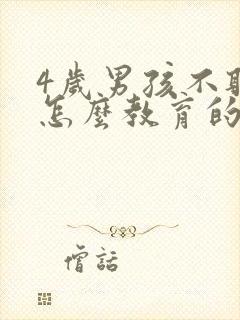 4歲男孩不
怎麼教育的
僧話